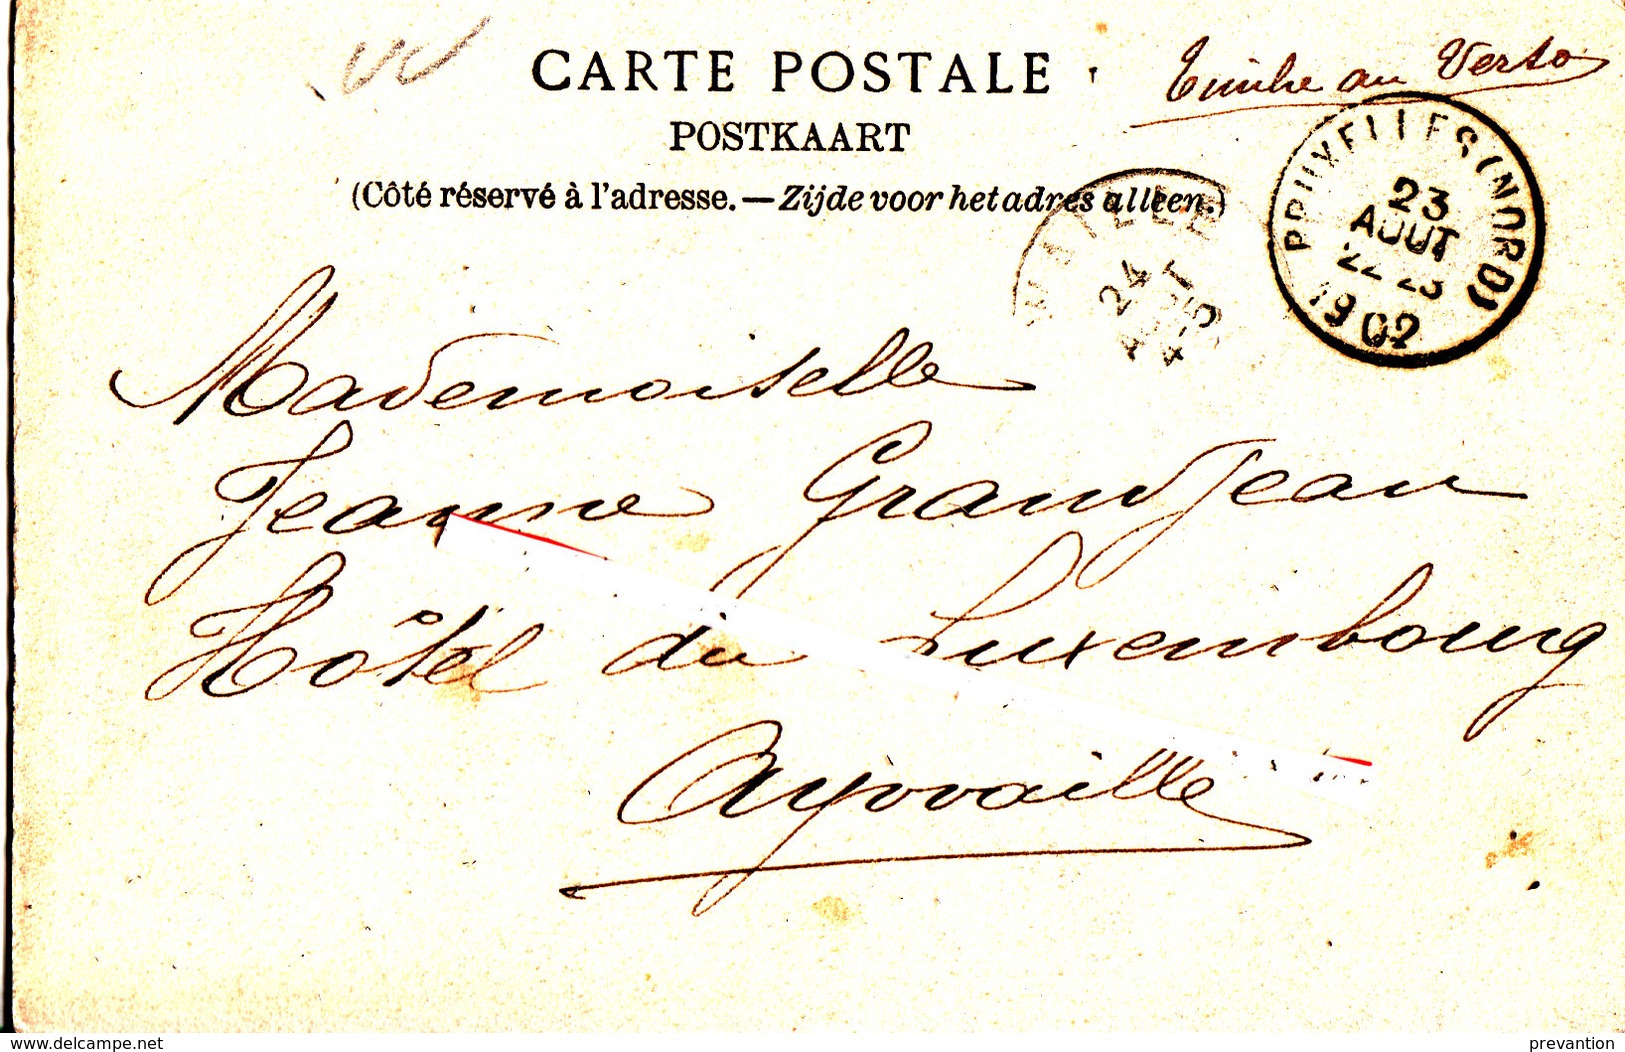 CARTE POSTALE
Timbre au Verso
POSTKAART
(Côté réservé à l'adresse. — Zijde voor het adres alleen.)
BRUXELLES (NORD)
23
AOUT
22-23
1902
24
Mademoiselle
Jeanne Grandjean
Hôtel du Luxembourg
Aywaille
www.delcampe.net
prevantion